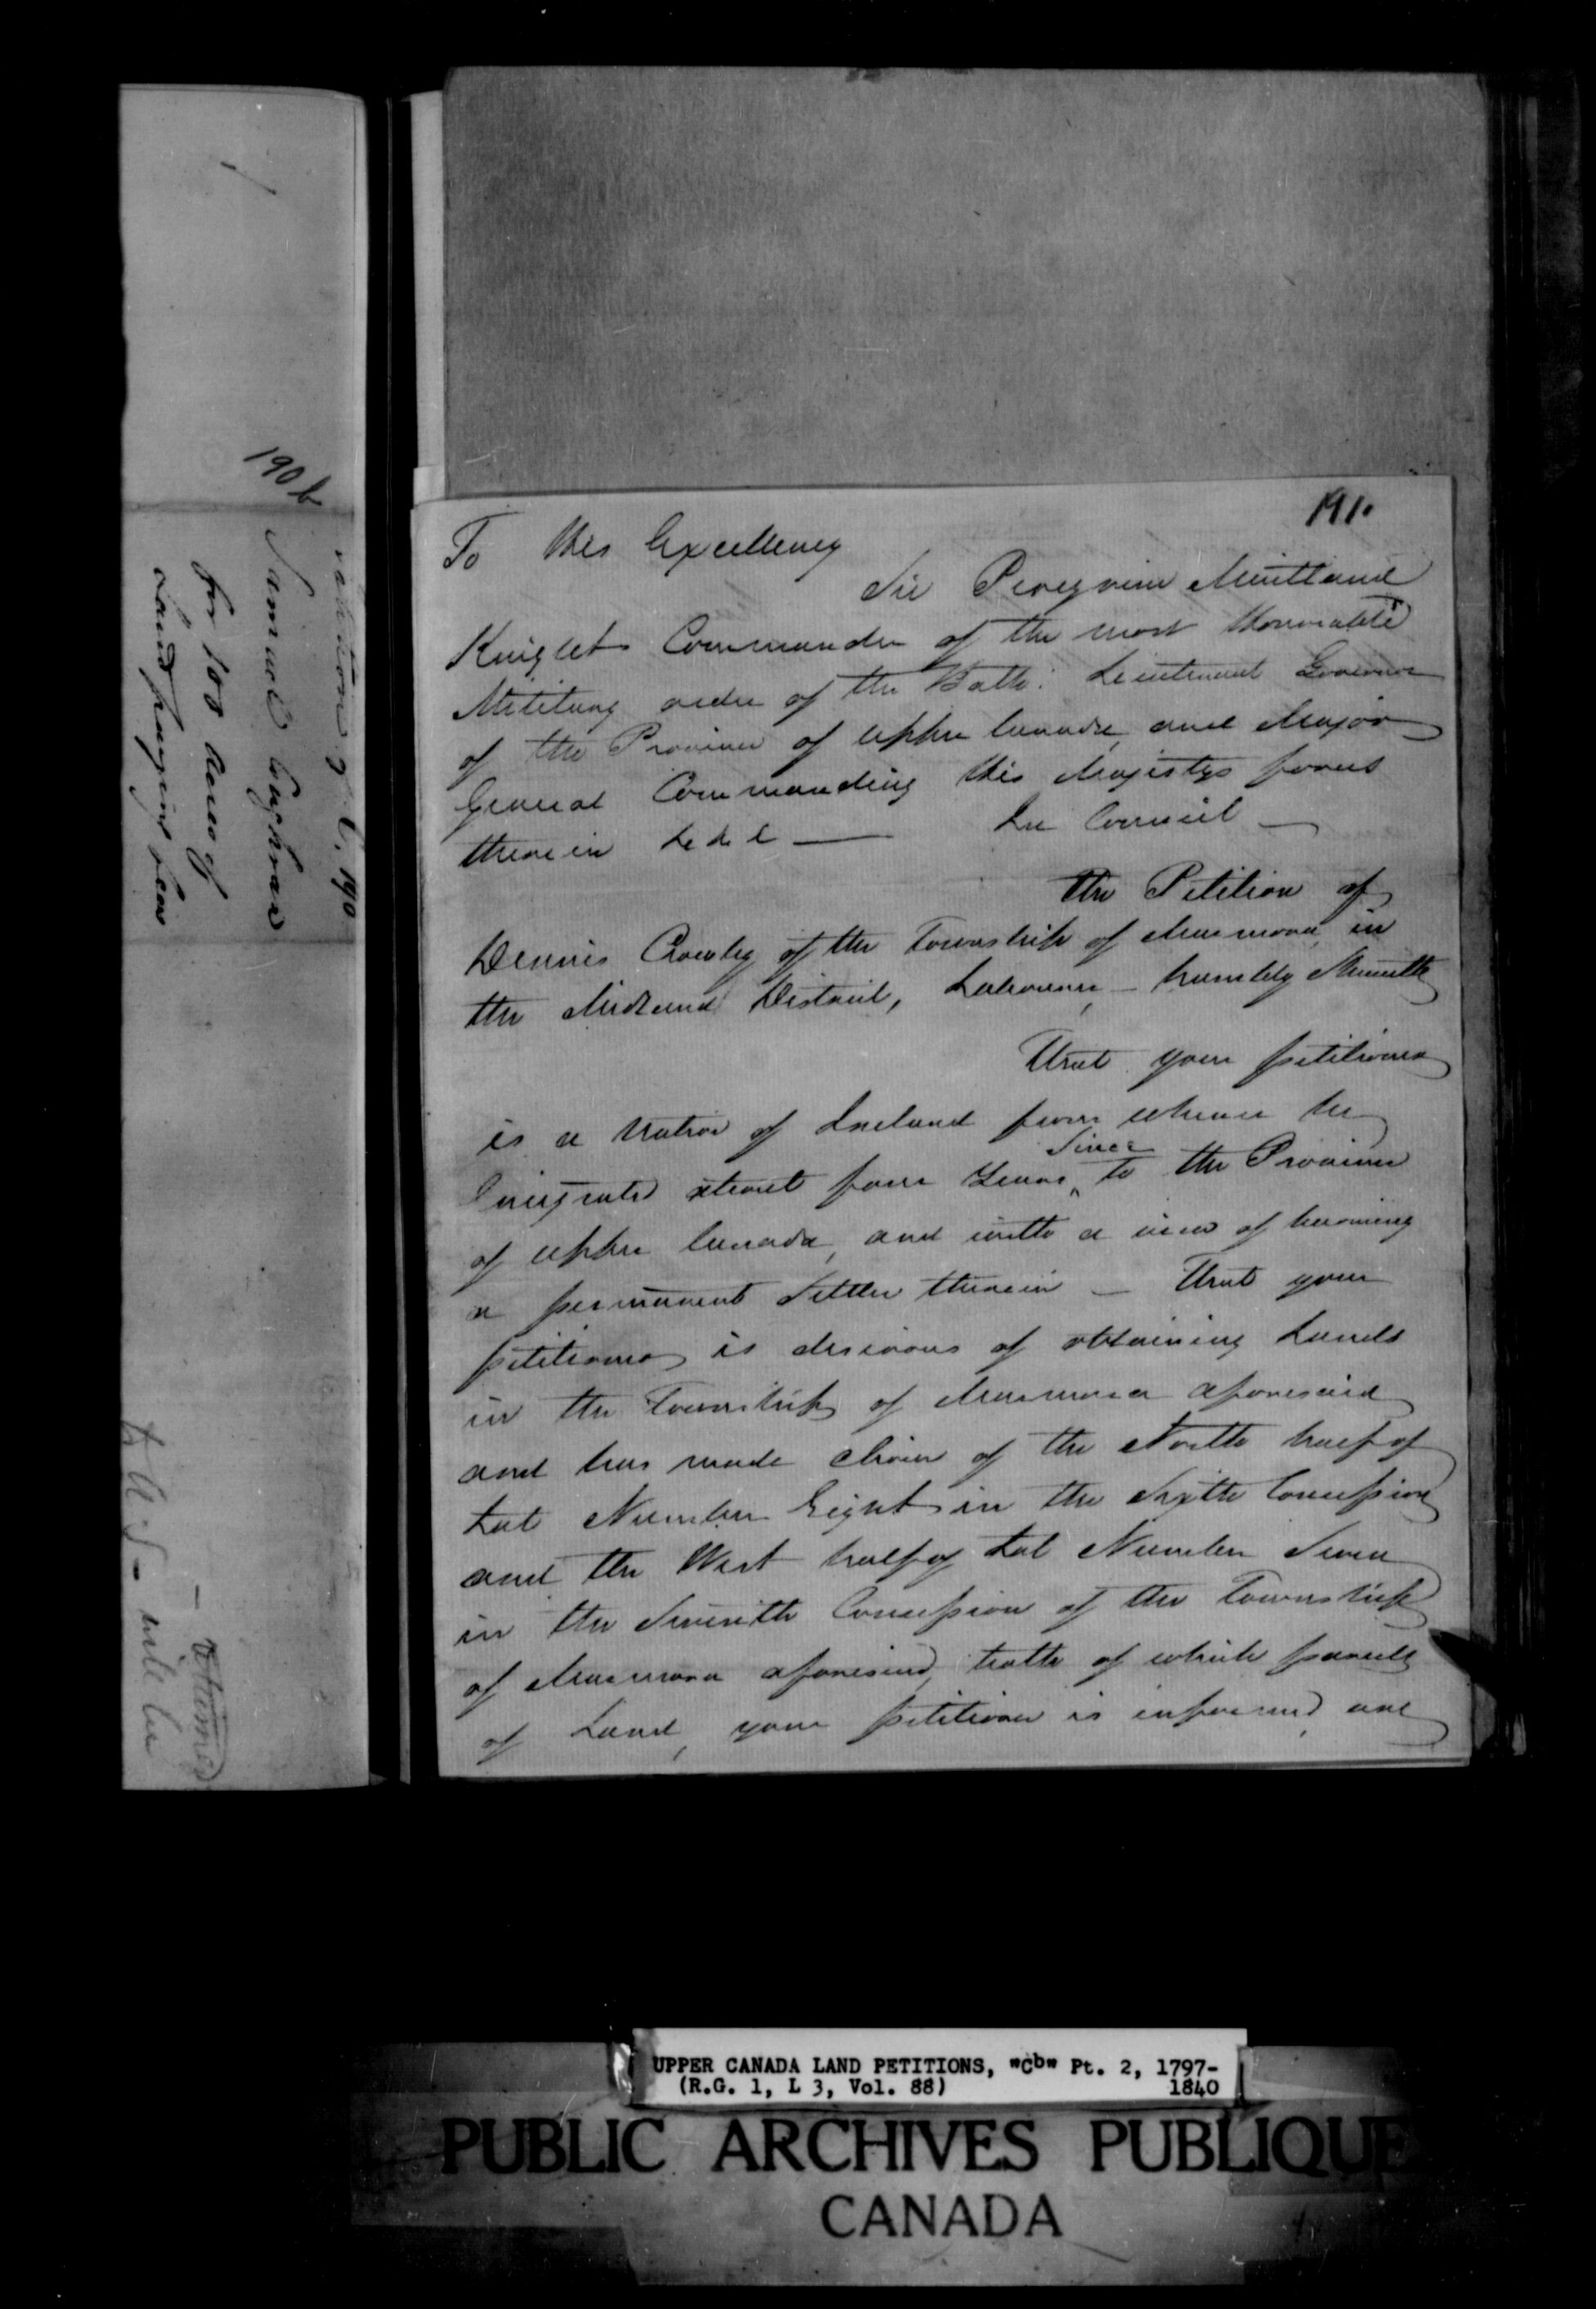 190 b
Samuel
for 100 Acres of
Land paying fees
191.
To His Excellency
Sir Peregrine Maitland
Knight Commander of the most Honorable
Military order of the Bath: Lieutenant Governor
of the Province of Upper Canada, and Major
General Commanding His Majestys forces
therein &c &c &c — In Council —
The Petition of
Dennis Crowley of the Township of Marmora, in
the Midland District, Labourer, — humbly Sheweth
That your petitioner
is a Native of Ireland from whence he
Emigrated about four Years Since to the Province
of Upper Canada, and with a view of becoming
a permanent Settler therein — That your
petitioner is desirous of obtaining Lands
in the Township of Marmora aforesaid
and has made choice of the North half of
Lot Number Eight in the Sixth Concession
and the West half of Lot Number Seven
in the Seventh Concession of the Township
of Marmora aforesaid, both of which parcels
of Land, your petitioner is informed, are
UPPER CANADA LAND PETITIONS, "Cb" Pt. 2, 1797-
(R.G. 1, L 3, Vol. 88) 1840
PUBLIC ARCHIVES PUBLIQUE
CANADA